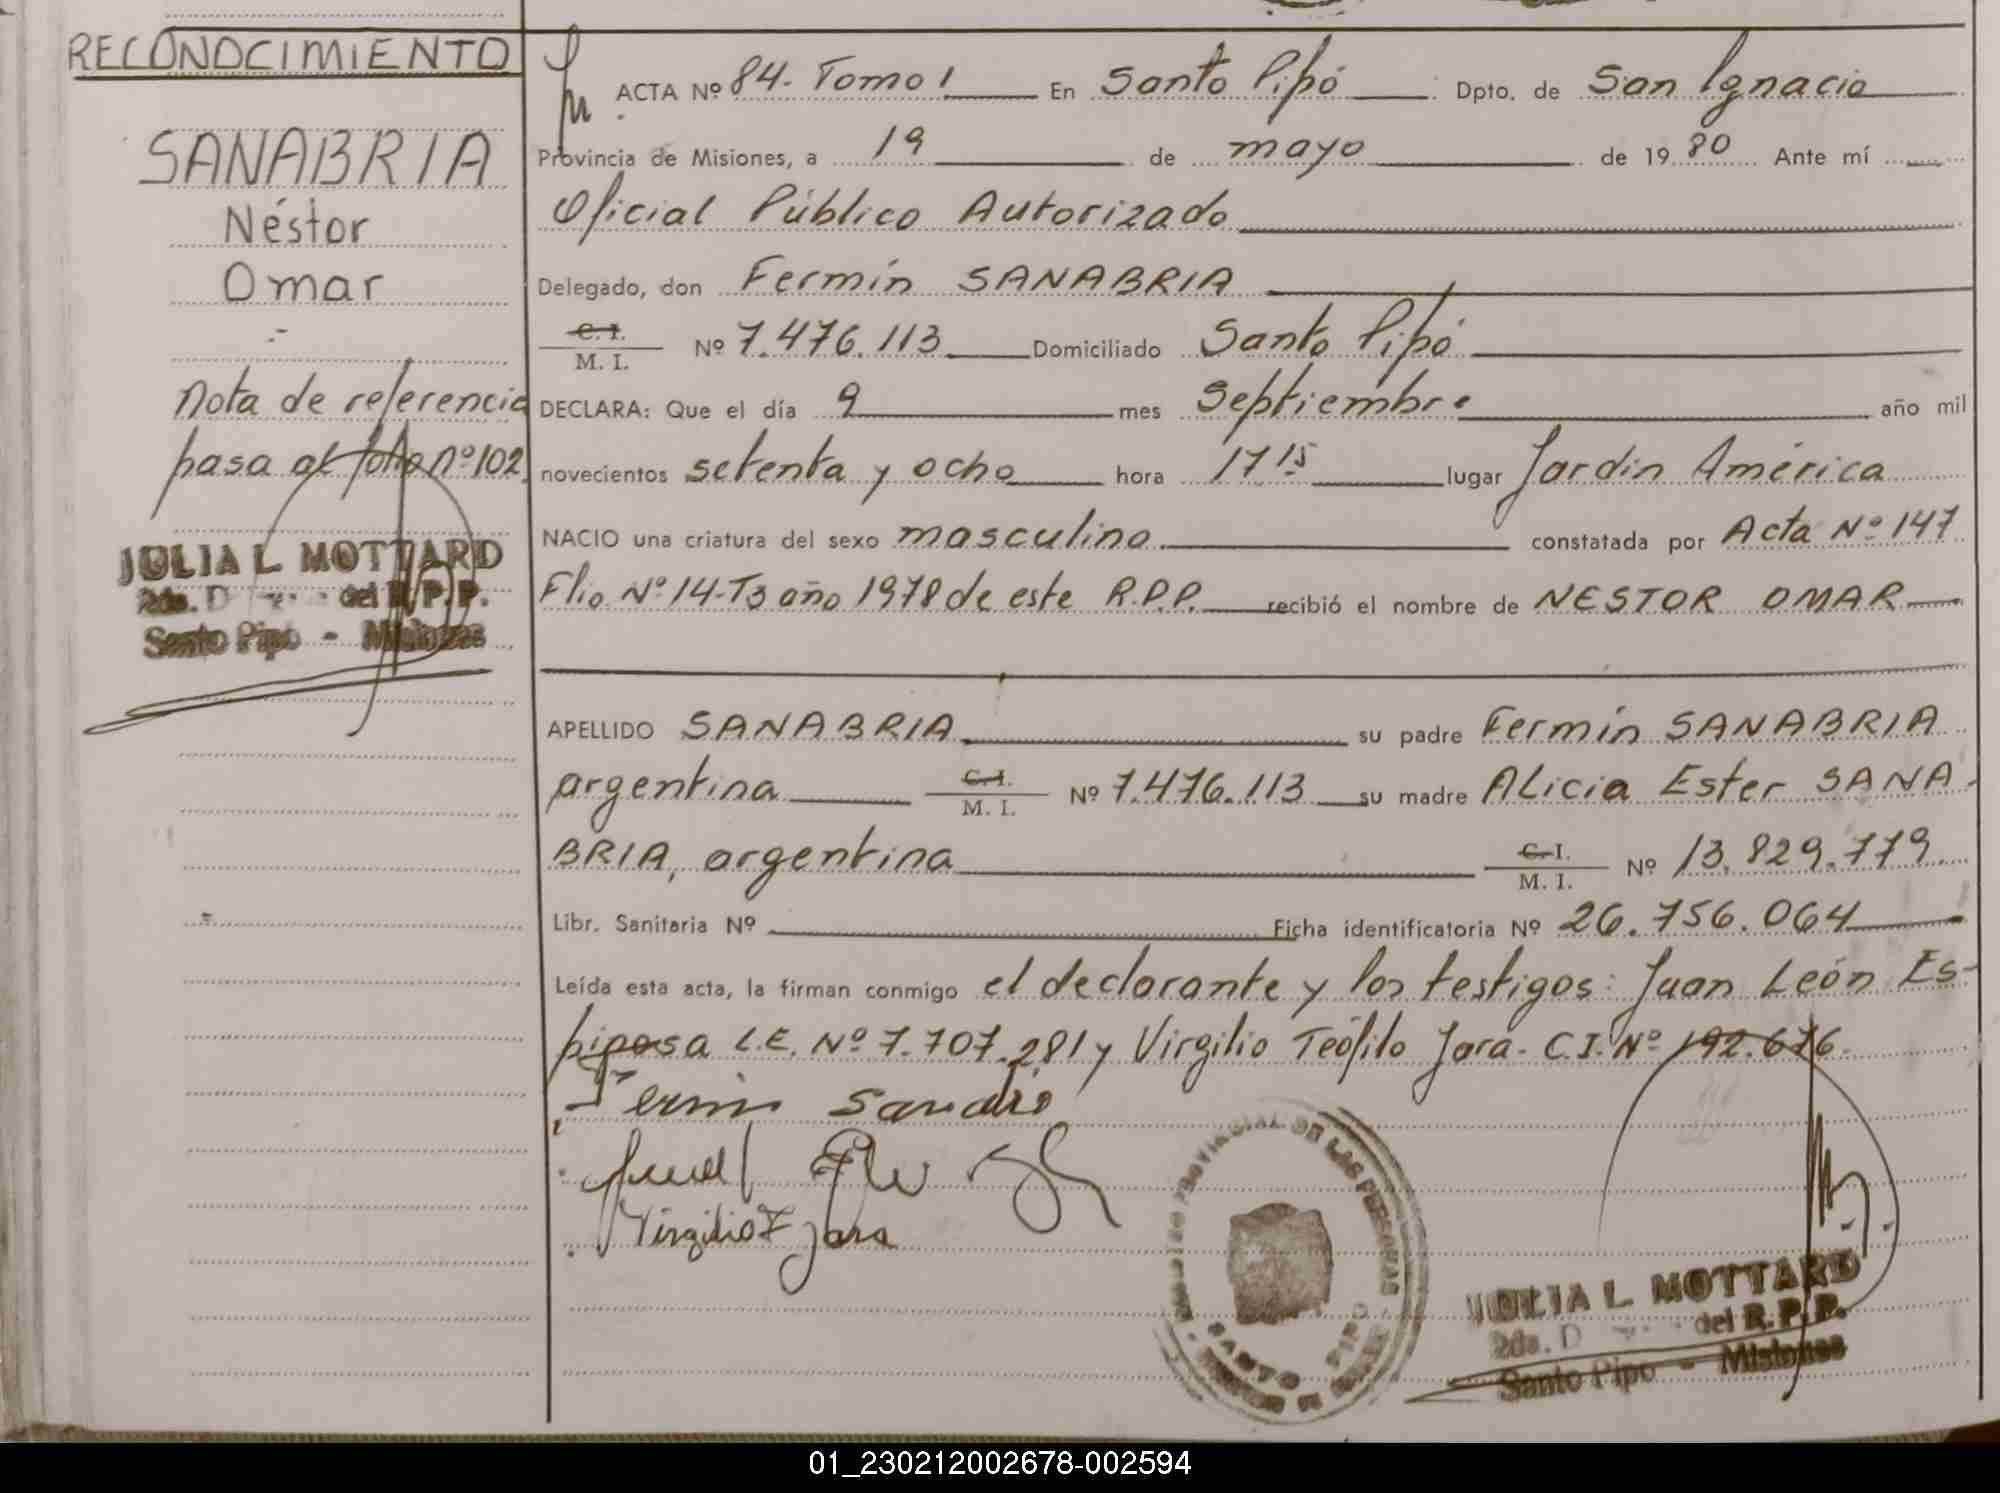 RECONOCIMIENTO
SANABRIA
Néstor
Omar
nota de referencia
pasa al folio nº 102
JULIA L. MOTTARD
2da. D del R.P.P.
Santo Pipo - Misiones
ACTA Nº 84. Tomo I En Santo Pipó Dpto. de San Ignacio
Provincia de Misiones, a 19 de mayo de 1980 Ante mí
Oficial Público Autorizado
Delegado, don Fermín SANABRIA
C.I.
M. I. Nº 7.476.113 Domiciliado Santo Pipó
DECLARA: Que el día 9 mes Septiembre año mil
novecientos setenta y ocho hora 17 15 lugar Jardín América
NACIO una criatura del sexo masculino constatada por Acta Nº 147
Flio. Nº 14-T3 año 1978 de este R.P.P. recibió el nombre de NESTOR OMAR
APELLIDO SANABRIA su padre Fermín SANABRIA
argentina C.I. M. I. Nº 7.476.113 su madre Alicia Ester SANA-
BRIA, argentina C.I. M. I. Nº 13.829.779
Libr. Sanitaria Nº Ficha identificatoria Nº 26.756.064
Leída esta acta, la firman conmigo el declarante y los testigos: Juan León Es-
pinosa L.E. Nº 7.707.281 y Virgilio Teófilo Jara. C.I. Nº 192.676.
Virgilio T Jara
REGISTRO PROVINCIAL DE LAS PERSONAS
SANTO PIPO
JULIA L. MOTTARD
2da. D del R.P.P.
Santo Pipo - Misiones
01_230212002678-002594